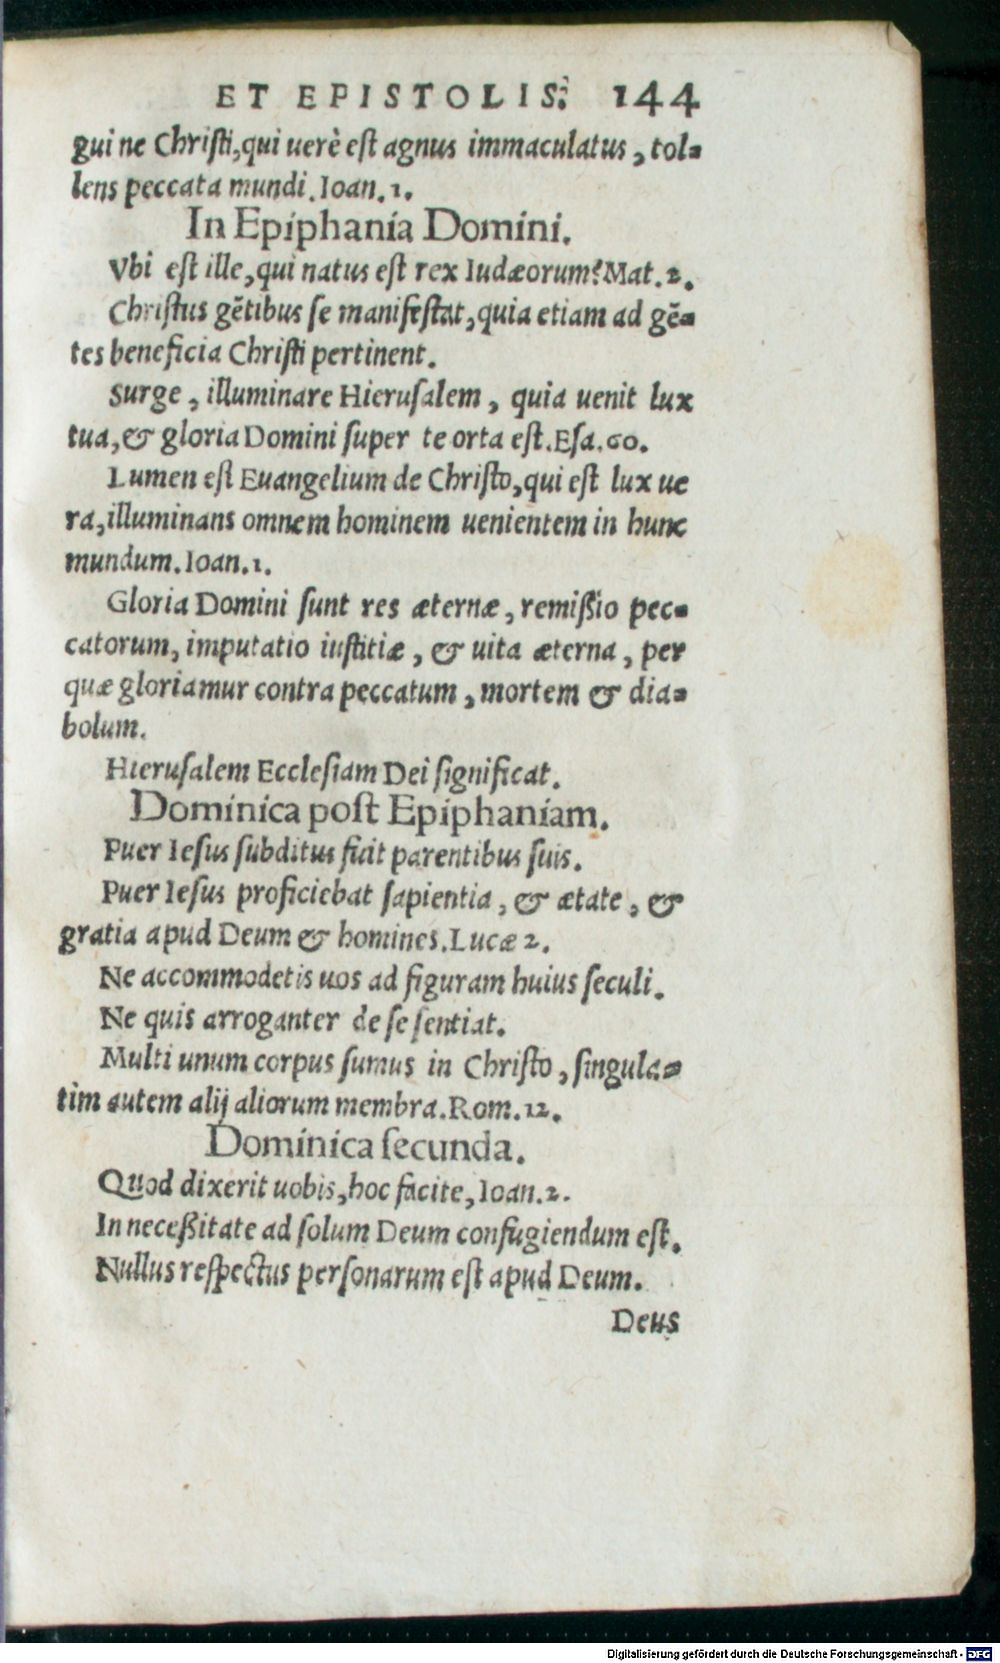 ET EPISTOLIS. 144
gui ne Christi, qui uerè est agnus immaculatus, tol-
lens peccata mundi. Ioan. 1.
In Epiphania Domini.
Vbi est ille, qui natus est rex Iudæorum? Mat. 2.
Christus gētibus se manifestat, quia etiam ad gē-
tes beneficia Christi pertinent.
Surge, illuminare Hierusalem, quia uenit lux
tua, & gloria Domini super te orta est. Esa. 60.
Lumen est Euangelium de Christo, qui est lux ue
ra, illuminans omnem hominem uenientem in hunc
mundum. Ioan. 1.
Gloria Domini sunt res æternæ, remißio pec-
catorum, imputatio iustitiæ, & uita æterna, per
quæ gloriamur contra peccatum, mortem & dia-
bolum.
Hierusalem Ecclesiam Dei significat.
Dominica post Epiphaniam.
Puer Iesus subditus fuit parentibus suis.
Puer Iesus proficiebat sapientia, & ætate, &
gratia apud Deum & homines. Lucæ 2.
Ne accommodetis uos ad figuram huius seculi.
Ne quis arroganter de se sentiat.
Multi unum corpus sumus in Christo, singula-
tim autem alij aliorum membra. Rom. 12.
Dominica secunda.
Quod dixerit uobis, hoc facite, Ioan. 2.
In neceßitate ad solum Deum confugiendum est.
Nullus respectus personarum est apud Deum.
Deus
Digitalisierung gefördert durch die Deutsche Forschungsgemeinschaft - DFG